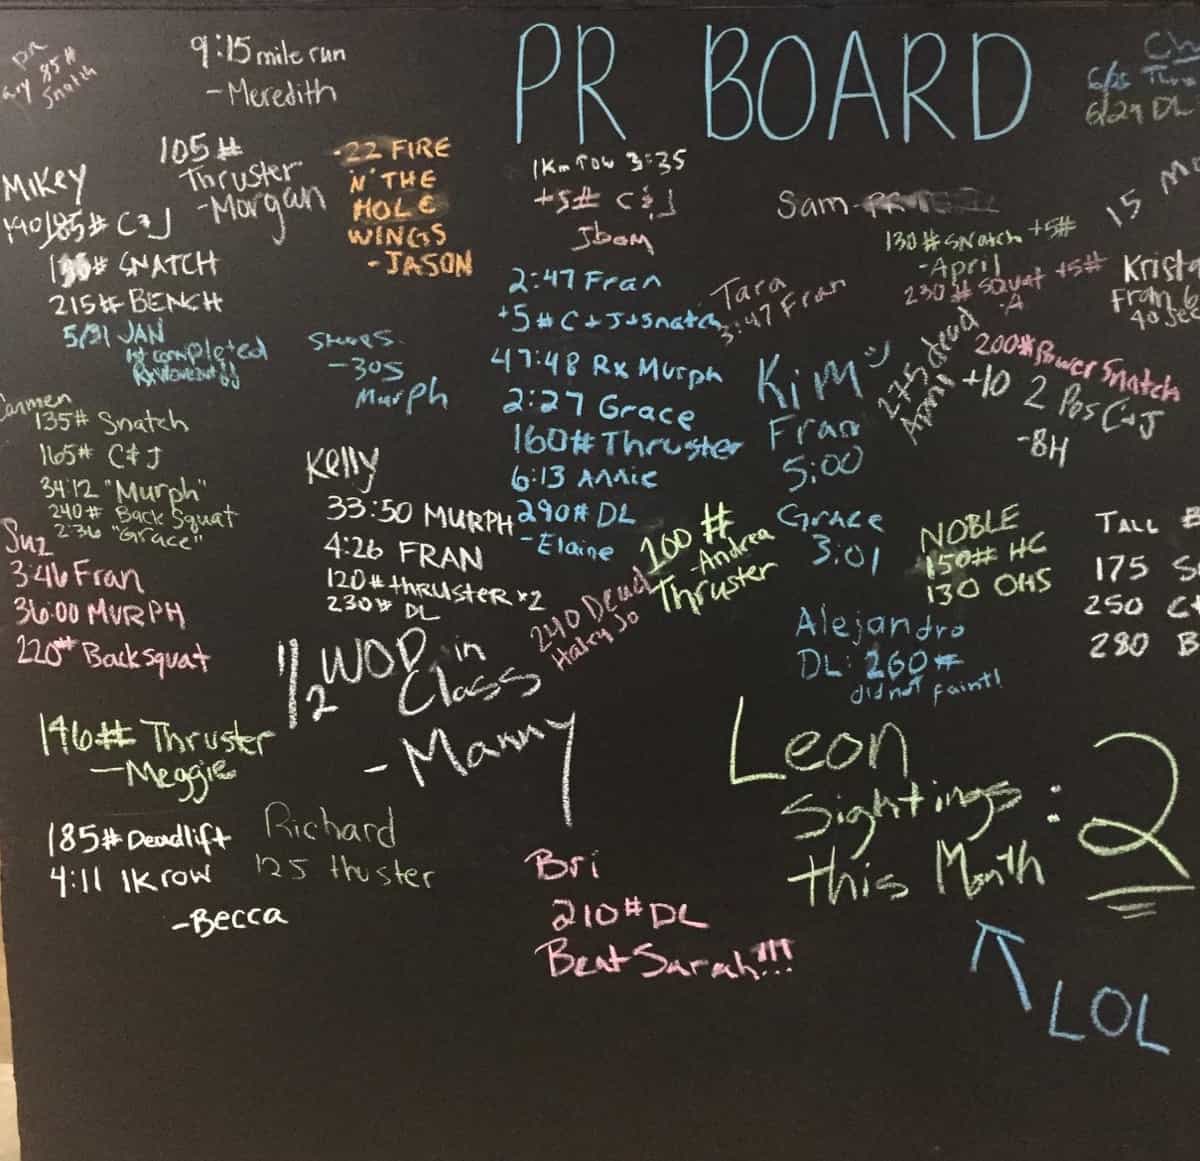 PR BOARD
pr
85#
Snatch
9:15 mile run
- Meredith
6/25
6/29 DL
MIKEY
190/185# C&J
SNATCH
215# BENCH
5/31 JAN
1st completed
Rx Movement
105#
Thruster
- Morgan
-22 FIRE
N' THE
HOLE
WINGS
- JASON
1Km row 3:35
+5# C&J
Jbom
Sam -
130# Snatch +5#
- April
230# Squat +5#
- A
15
Krista
Fran
40 Sec
2:47 Fran
+5# C+J+Snatch
47:48 Rx Murph
2:27 Grace
160# Thruster
6:13 Annie
290# DL
- Elaine
Tara
3:47 Fran
-30s
Murph
Kim
Fran
5:00
Grace
3:01
275 dead
April
200# Power Snatch
+10 2 Pos C+J
- BH
Carmen
135# Snatch
165# C&J
34:12 "Murph"
240# Back Squat
2:36 "Grace"
Kelly
33:50 MURPH
4:26 FRAN
120# THRUSTER x2
230# DL
Suz
3:46 Fran
36:00 MURPH
220# Back squat
100#
- Andrea
Thruster
NOBLE
150# HC
130 OHS
TALL #
175 S
250 C
280 B
240 Dead
Haley Jo
Alejandro
DL: 260#
did not faint!
1/2 WOD in
Class
- Manny
146# Thruster
- Meggie
Leon
Sightings : 2
this Month
185# Deadlift
4:11 1K row
- Becca
Richard
125 thruster
Bri
210# DL
Beat Sarah!!!
LOL